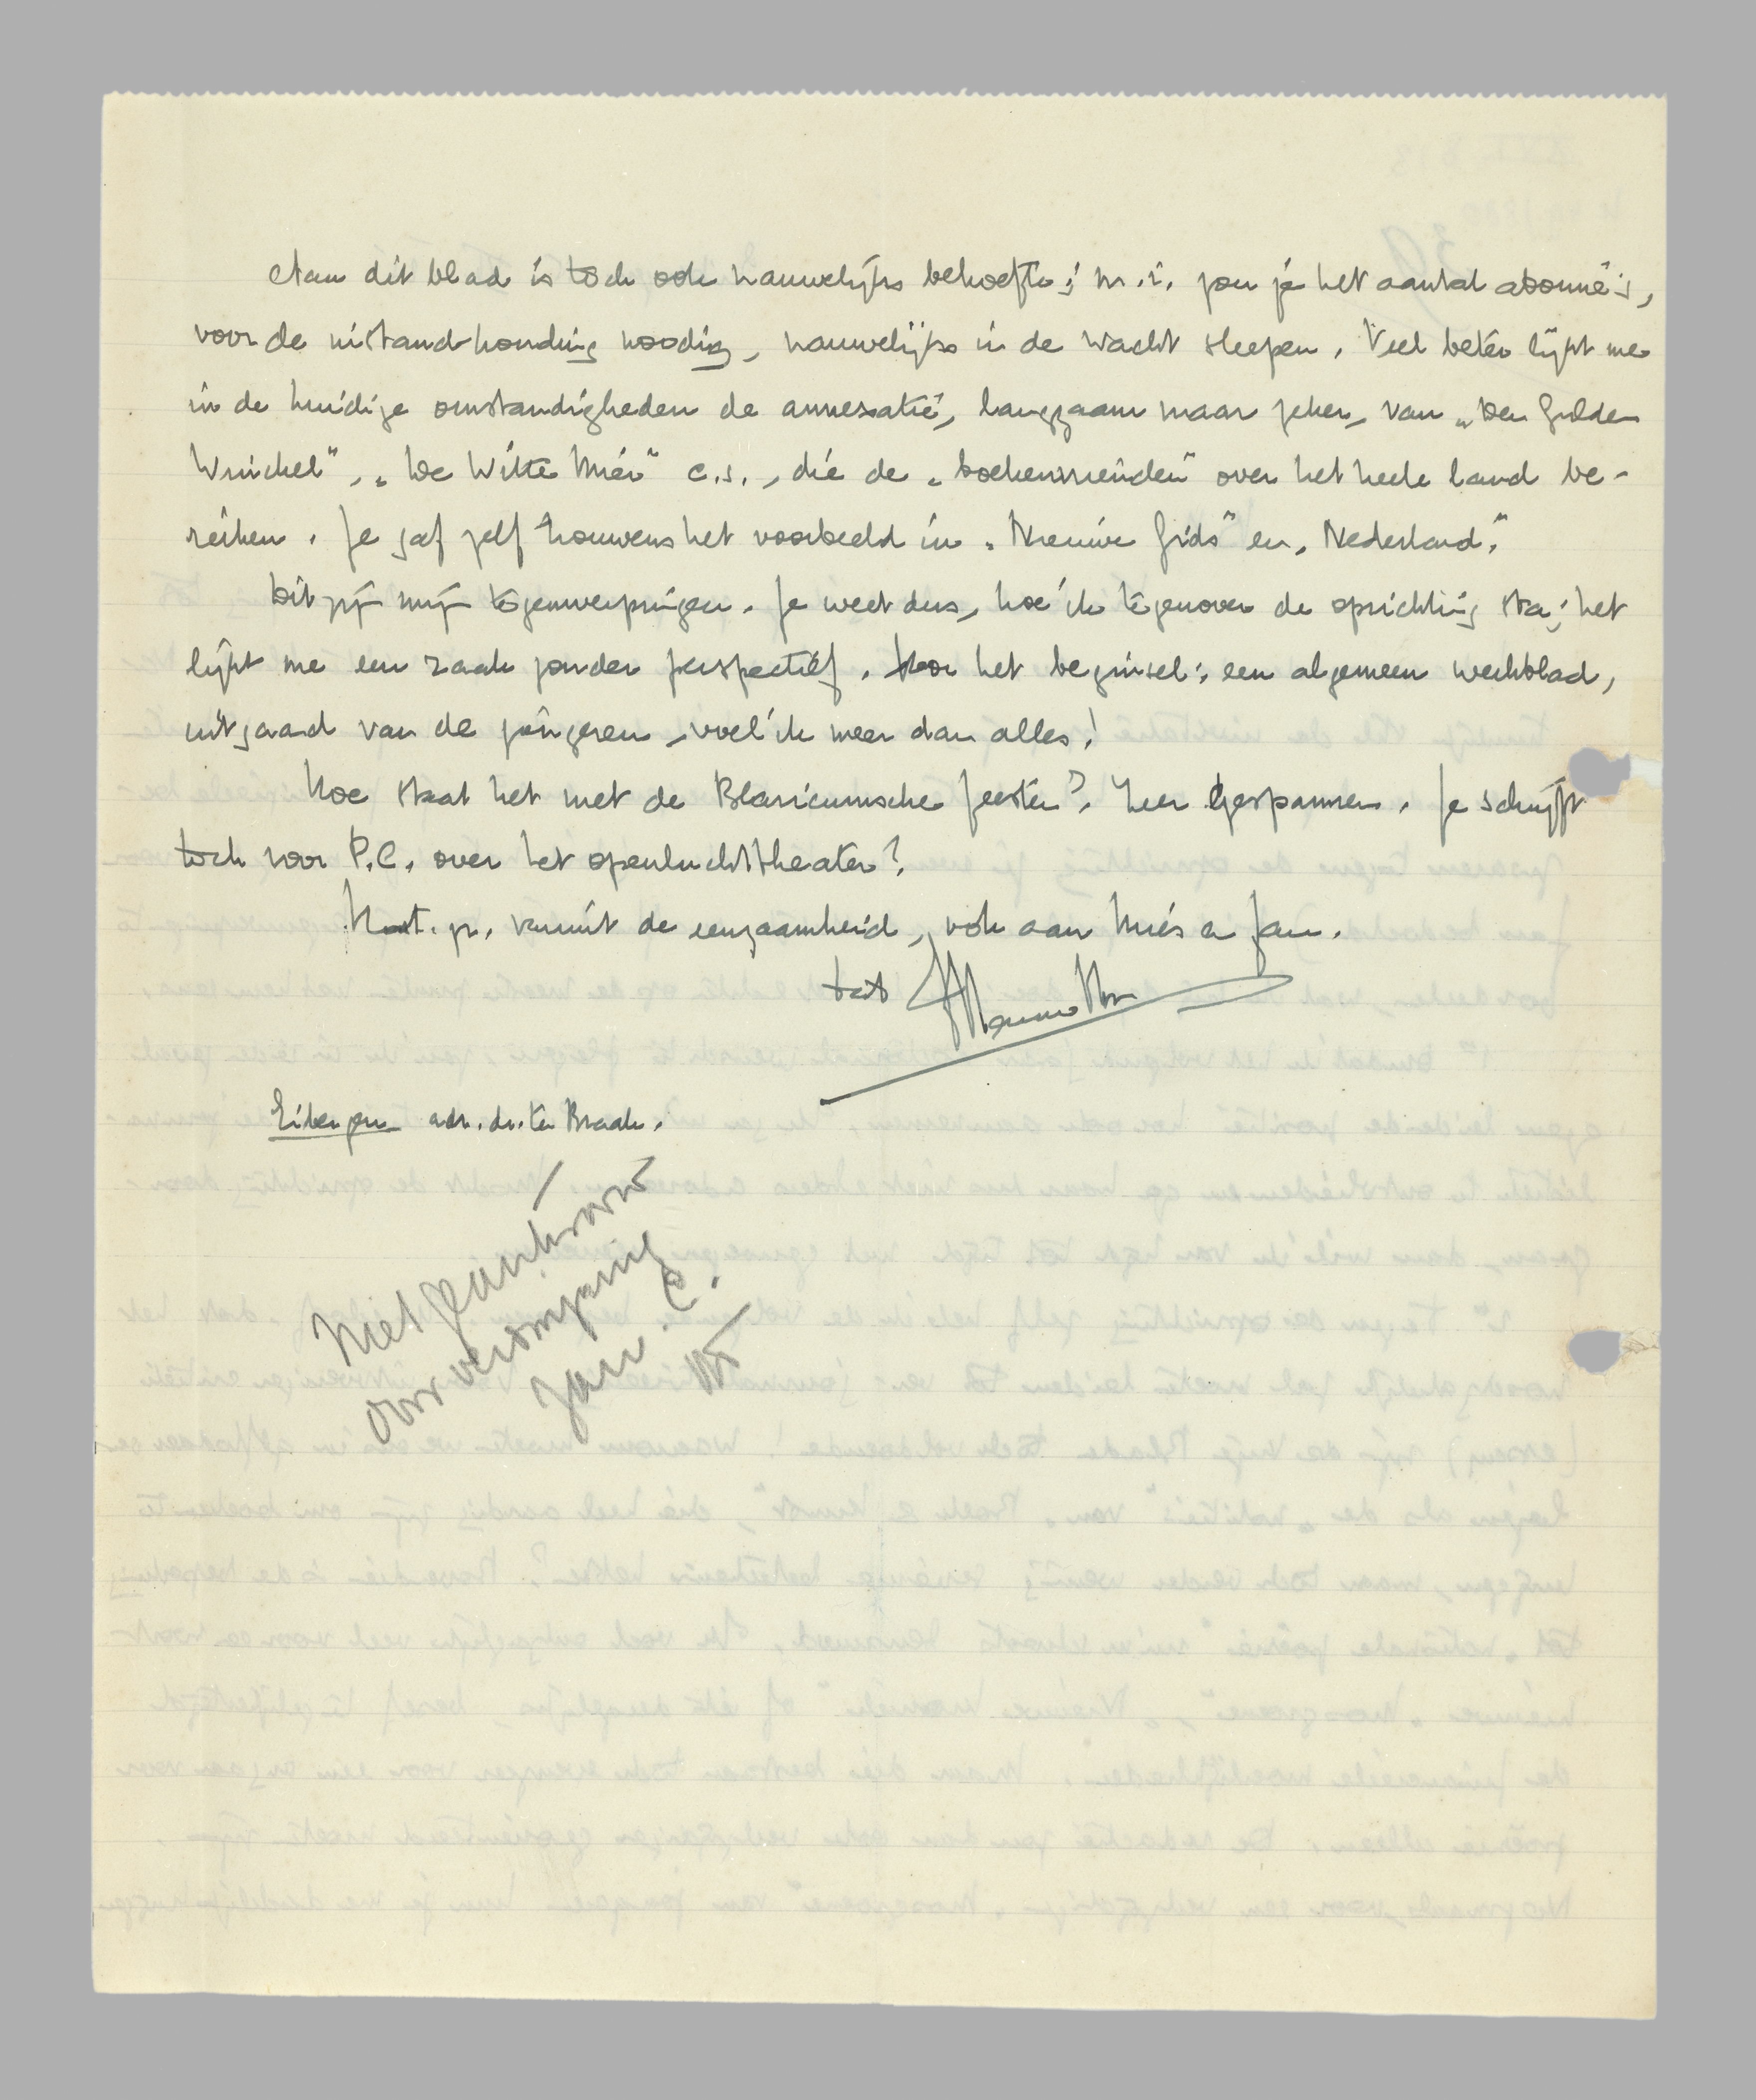 Aan dit blad is toch ook nauwelijks behoefte; m.i. zou je het aantal abonné's,
voor de instandhouding noodig, nauwelijks in de wacht sleepen. Veel beter lijkt me
in de huidige omstandigheden de annexatie, langzaam maar zeker, van „Den Gulden
Winckel", „De Witte Mier" e.s., die de „boekenvrienden" over het heele land be-
reiken. Je gaf zelf trouwens het voorbeeld in „Nieuwe Gids" en „Nederland."
Dit zijn mijn tegenwerpingen. Je weet dus, hoe ik tegenover de oprichting sta; het
lijkt me een zaak zonder perspectief. Voor het beginsel: een algemeen weekblad,
uitgaand van de jongeren, voel ik meer dan alles!
Hoe staat het met de Blaricumsche feesten? Zeer gespannen. Je schrijft
toch voor P.C. over het openluchttheater?
Hart. gr. vanuit de eenzaamheid, ook aan Mies en Jan.
tat Menno ttn
Eibergen adr. dr. ter Braak.
Niet geantwoord
voor verdomping
Jan C.